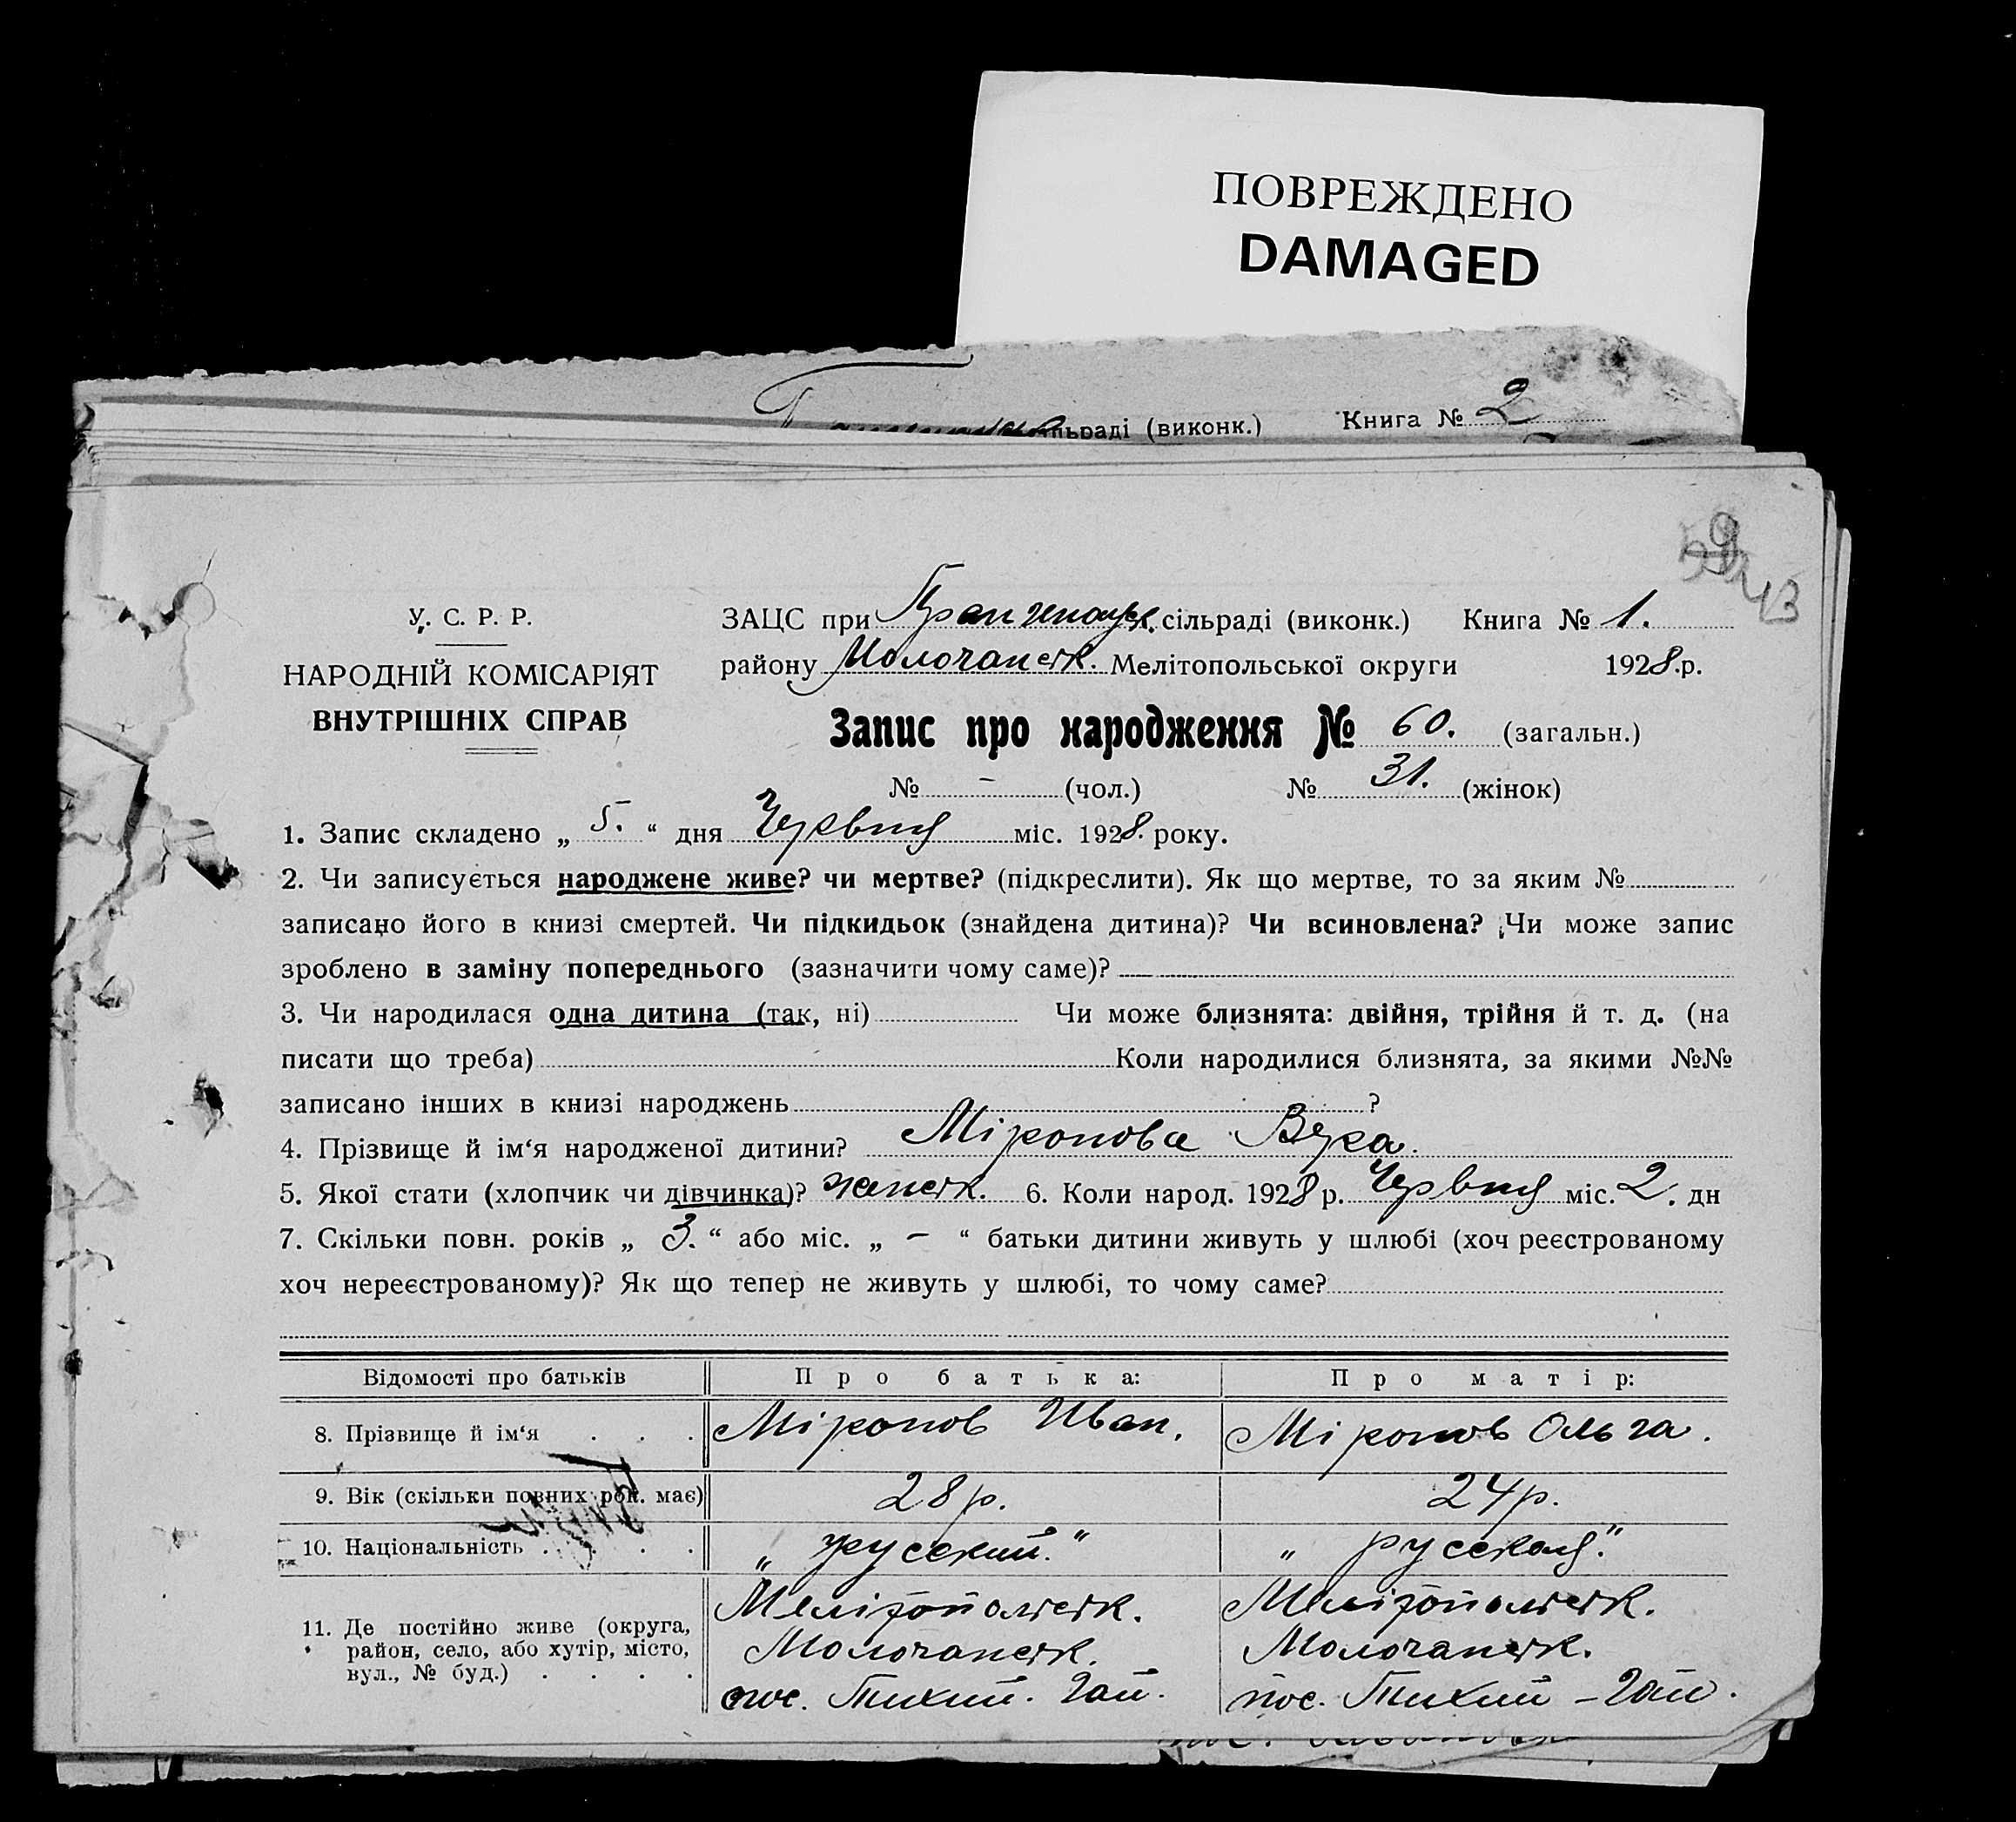 ПОВРЕЖДЕНО
DAMAGED
сільраді (виконк.) Книга № 2
У. С. Р. Р.
НАРОДНІЙ КОМІСАРІЯТ
ВНУТРІШНІХ СПРАВ
ЗАЦС при сільраді (виконк.) Книга № 1.
району Молочанськ. Мелітопольської округи 1928.р.
Запис про народження № 60. (загальн.)
№ – (чол.) № 31. (жінок)
1. Запис складено „ 5. “ дня Червня міс. 1928. року.
2. Чи записується народжене живе? чи мертве? (підкреслити). Як що мертве, то за яким №
записано його в книзі смертей. Чи підкидьок (знайдена дитина)? Чи всиновлена? Чи може запис
зроблено в заміну попереднього (зазначити чому саме)?
3. Чи народилася одна дитина (так, ні) Чи може близнята: двійня, трійня й т. д. (на
писати що треба) Коли народилися близнята, за якими №№
записано інших в книзі народжень ?
4. Прізвище й ім‘я народженої дитини? Міронова Вера.
5. Якої стати (хлопчик чи дівчинка)? женськ. 6. Коли народ. 1928 р. Червня міс. 2. дн
7. Скільки повн. років „ 3. “ або міс. „ – “ батьки дитини живуть у шлюбі (хоч реєстрованому
хоч нереєстрованому)? Як що тепер не живуть у шлюбі, то чому саме?
Відомості про батьків Про батька: Про матір:
8. Прізвище й ім‘я . . . Міронов Иван. Міронов Ольга.
9. Вік (скільки повних рок. має) 28 р. 24 р.
10. Національність . . . . „ русский.“ „ русская.“
11. Де постійно живе (округа, Мелітопольськ. Мелітопольськ.
район, село, або хутір, місто, Молочанськ. Молочанськ.
вул., № буд.) . . . . пос. Тихий. Гай. пос. Тихий – Гай.